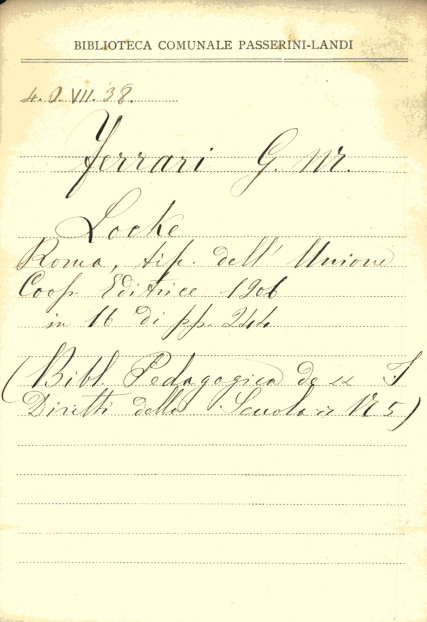 BIBLIOTECA COMUNALE PASSERINI-LANDI
4. O. VII. 38.
Ferrari G. M.
Locke
Roma, tip. dell' Unione
Coop. Editrice 1906
in 16 di pp. 244
(Bibl. Pedagogica de "I
Diritti della Scuola" N 5)